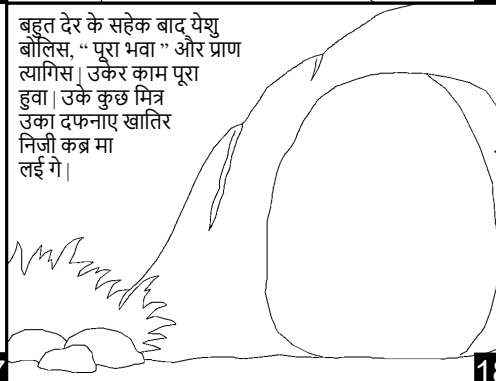 बहुत देर के सहेक बाद येशु
बोलिस, “ पूरा भवा ” और प्राण
त्यागिस | उकेर काम पूरा
हुवा | उके कुछ मित्र
उका दफनाए खातिर
निजी कब्र मा
लई गे |